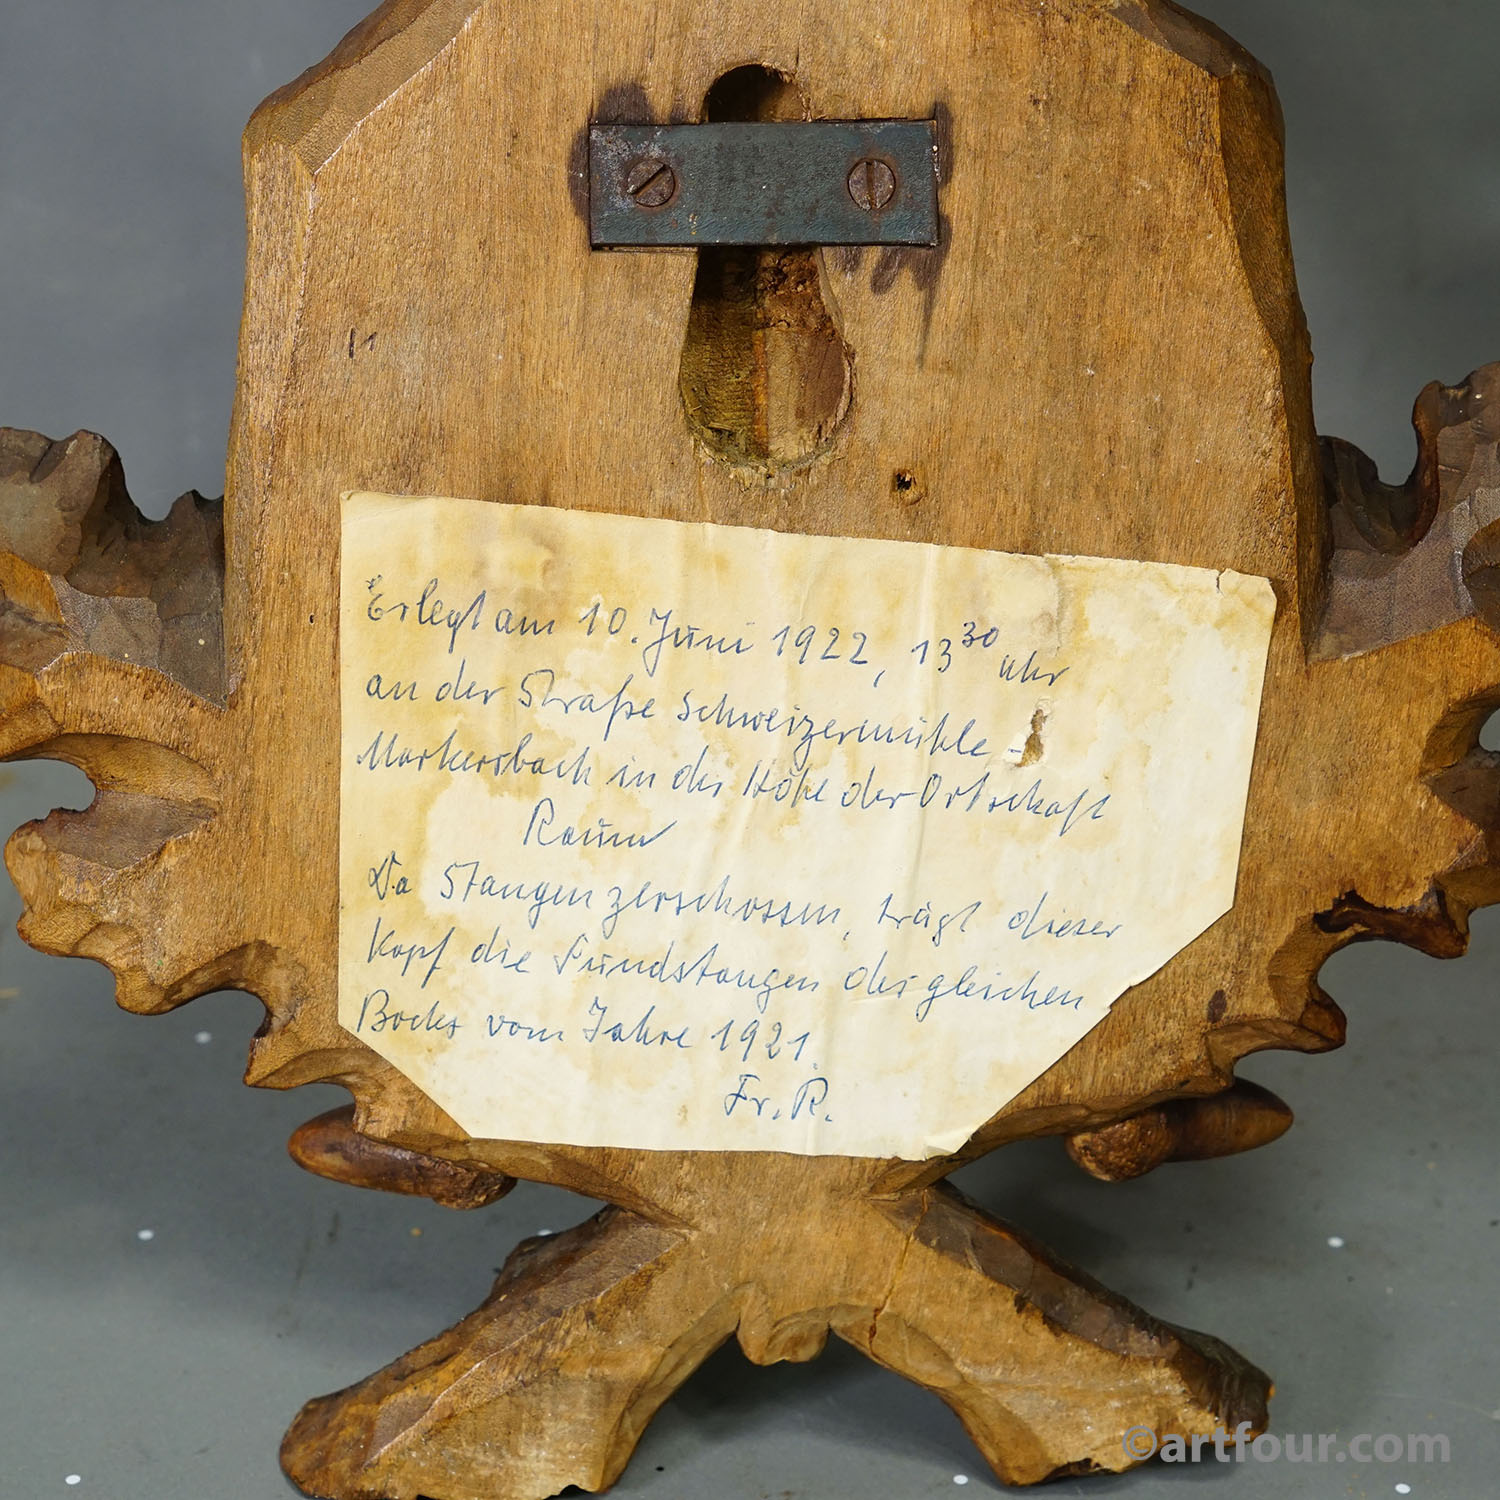 Erlegt am 10. Juni 1922, 13³⁰ Uhr
an der Straße Schweizermühle -
Markersbach in der Höhe der Ortschaft
Raum
Da Stangen zerschossen, trägt dieser
Kopf die Fundstangen des gleichen
Bocks vom Jahre 1921.
Fr. R.
©artfour.com